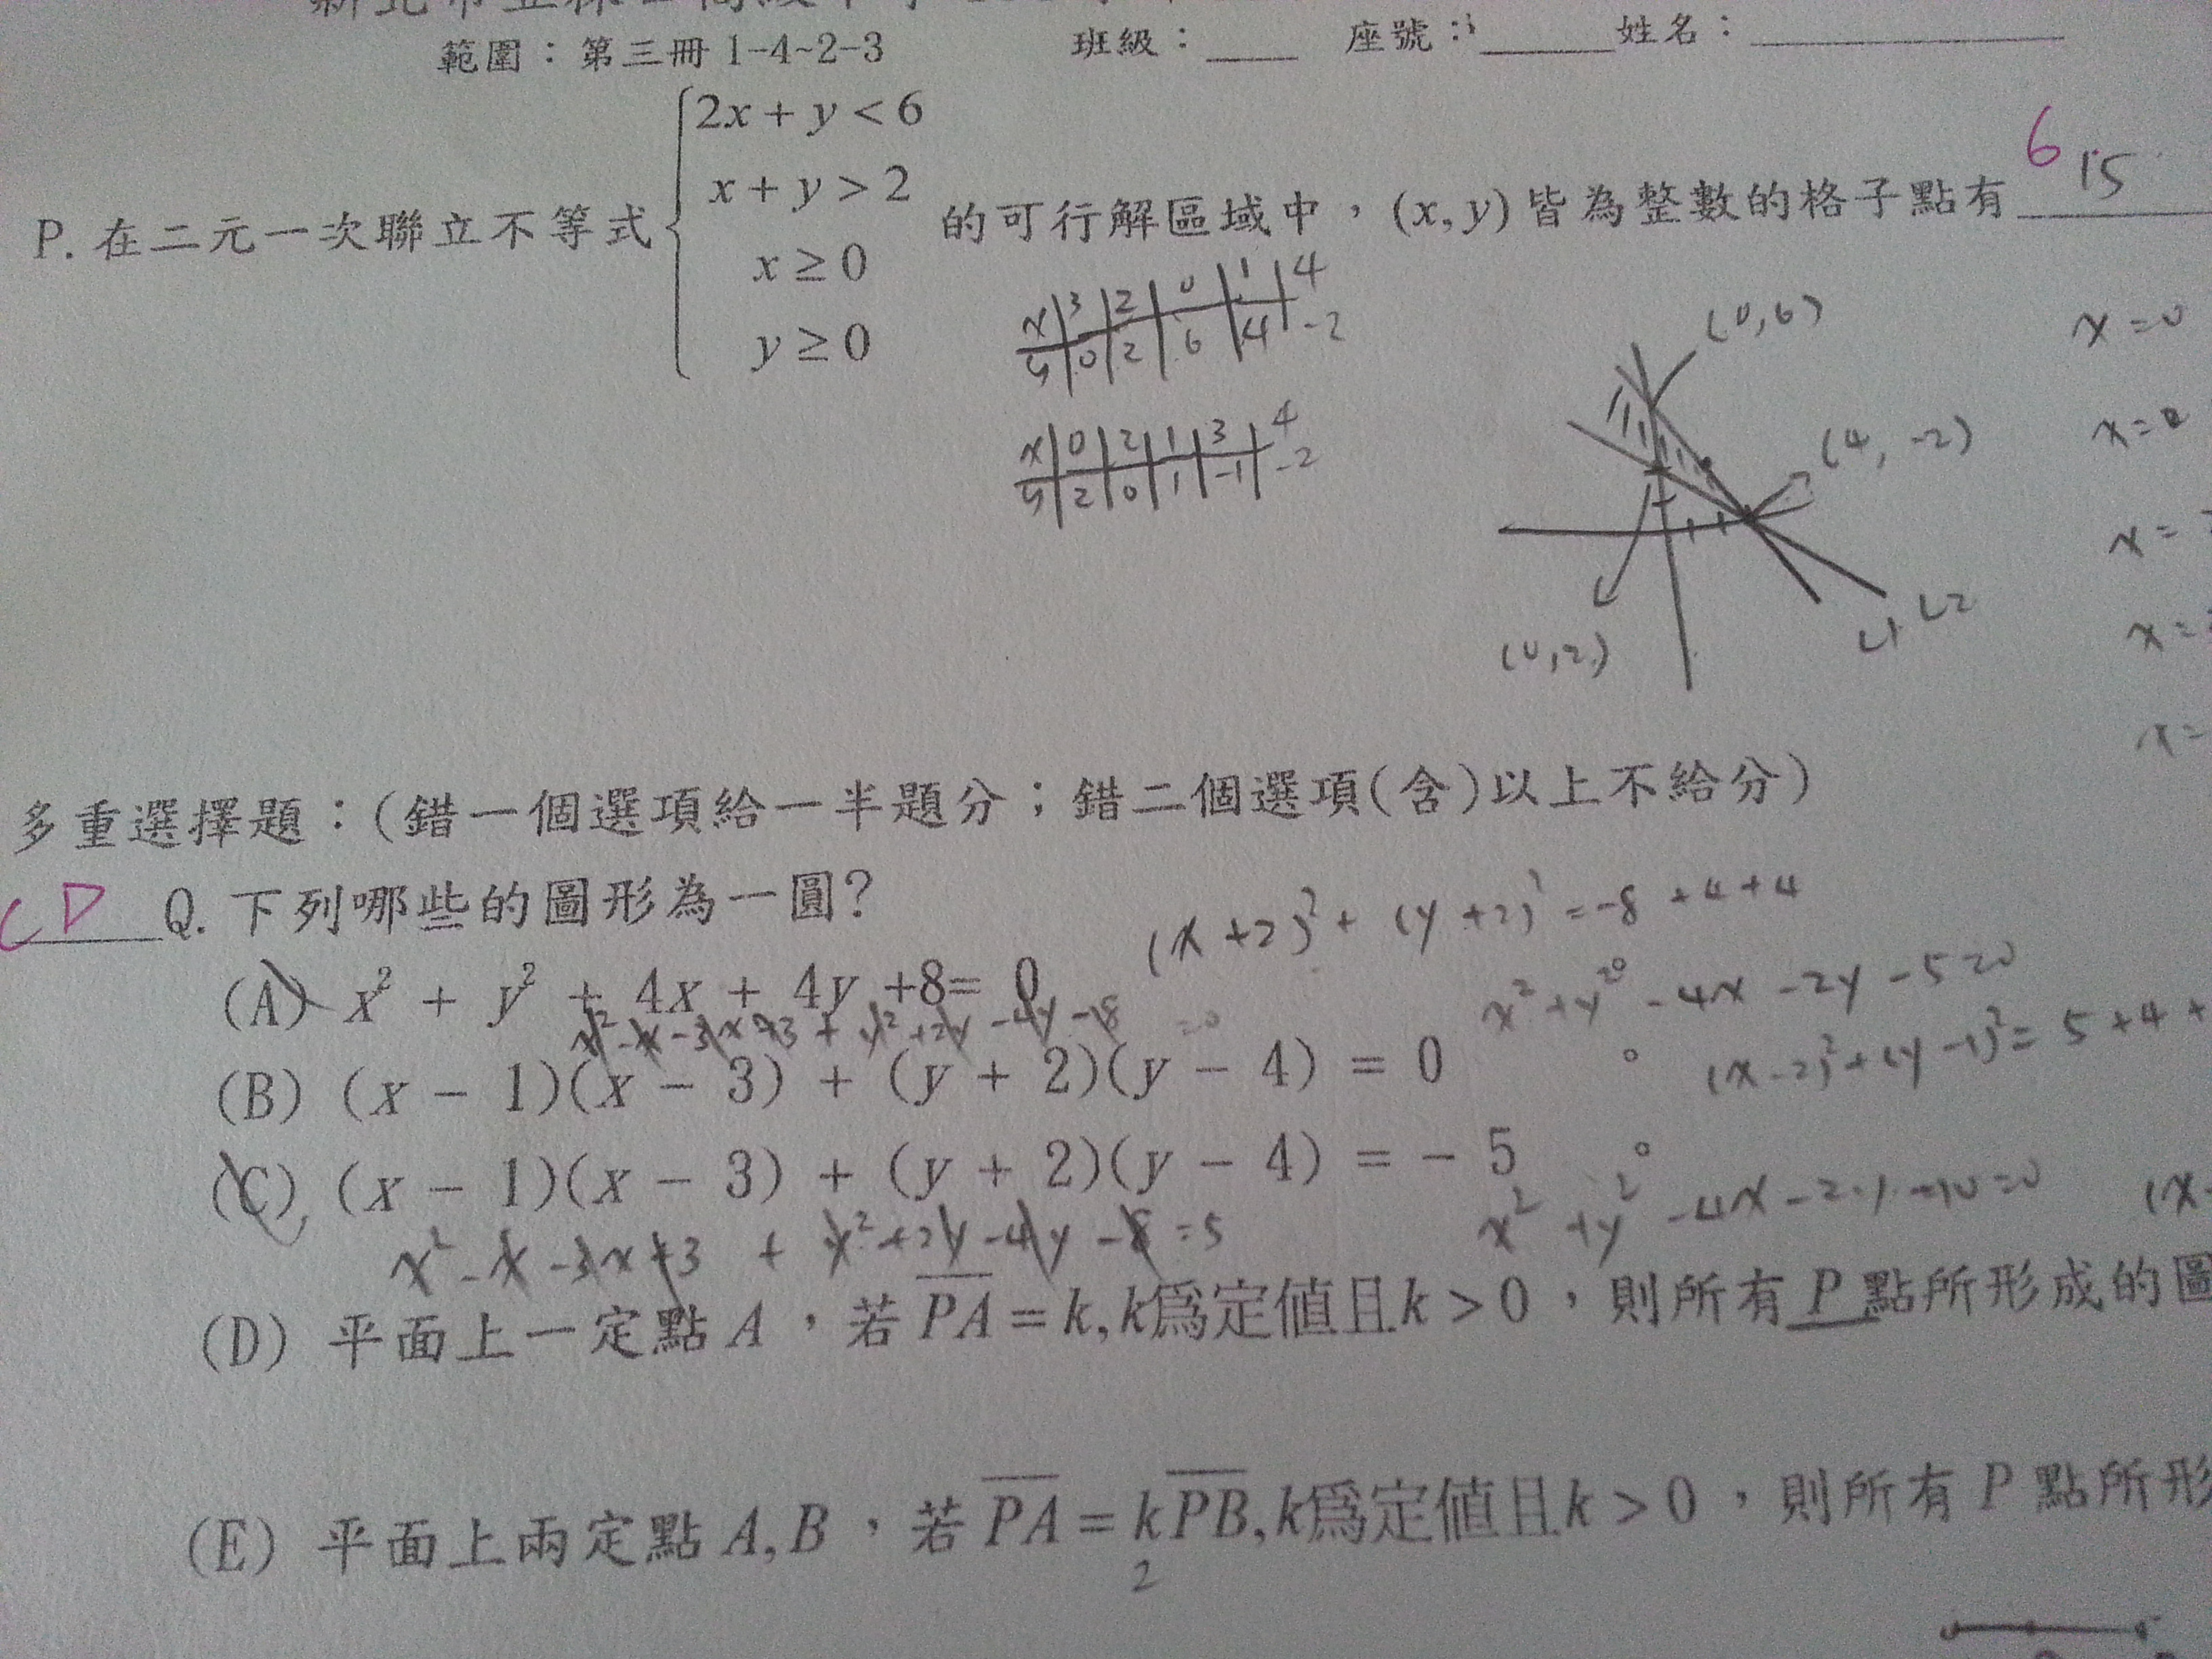 範圍：第三冊 1-4~2-3 班級：____ 座號：______ 姓名：______________
2x + y < 6
x + y > 2
P. 在二元一次聯立不等式 的可行解區域中，(x, y) 皆為整數的格子點有 6 15
x ≥ 0
y ≥ 0
x 3 2 0 1 4
y 0 2 6 4 -2
x 0 2 1 3 4
y 2 0 1 -1 -2
(0,6)
(4, -2)
(0,2)
L1 L2
x = 0
x =
x =
x =
x =
多重選擇題：(錯一個選項給一半題分；錯二個選項(含)以上不給分)
CD Q. 下列哪些的圖形為一圓?
(x+2)² + (y+2)² = -8 + 4 + 4
(A) x² + y² + 4x + 4y +8= 0
x² - x - 3x + 3 + y² + 2y - 4y - 8 = 0
x² + y² - 4x - 2y - 5 = 0
(B) (x - 1)(x - 3) + (y + 2)(y - 4) = 0
(x-2)² + (y-1)² = 5 + 4 +
(C) (x - 1)(x - 3) + (y + 2)(y - 4) = - 5
x² - x - 3x + 3 + y² + 2y - 4y - 8 = 5
x² + y² - 4x - 2y - 10 = 0 (x-
(D) 平面上一定點 A，若 PA = k, k為定值且k > 0，則所有 P 點所形成的圖
(E) 平面上兩定點 A, B，若 PA = kPB, k為定值且k > 0，則所有 P 點所形
2